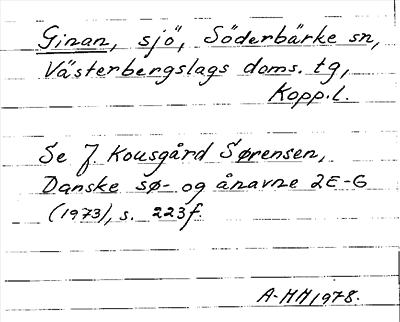 Ginan, sjö, Söderbärke sn,
Västerbergslags doms. tg,
Kopp.l.
Se J. Kousgård Sørensen,
Danske sø- og ånavne 2E-G
(1973), s. 223f.
A-HH 1978.